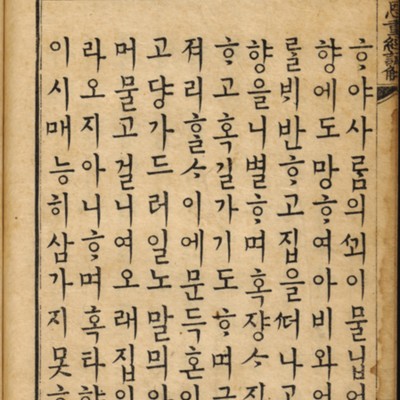 恩重經諺解
ᄒᆞ야사ᄅᆞᆷ의ᄭᅬ이물닙어
향에도망ᄒᆞ여아비와어
ᄅᆞᆯᄇᆡ반ᄒᆞ고집을ᄯᅥ나고
향을니별ᄒᆞ며혹쟝ᄉᆞ
ᄒᆞ고혹길가기도ᄒᆞ며
져리ᄒᆞᆯᄉᆞ이에문득혼
고댱가드러일노말ᄆᆡ아
머물고걸니여오래집의
라오지아니ᄒᆞ며혹타향
이시매능히삼가지못ᄒᆞ